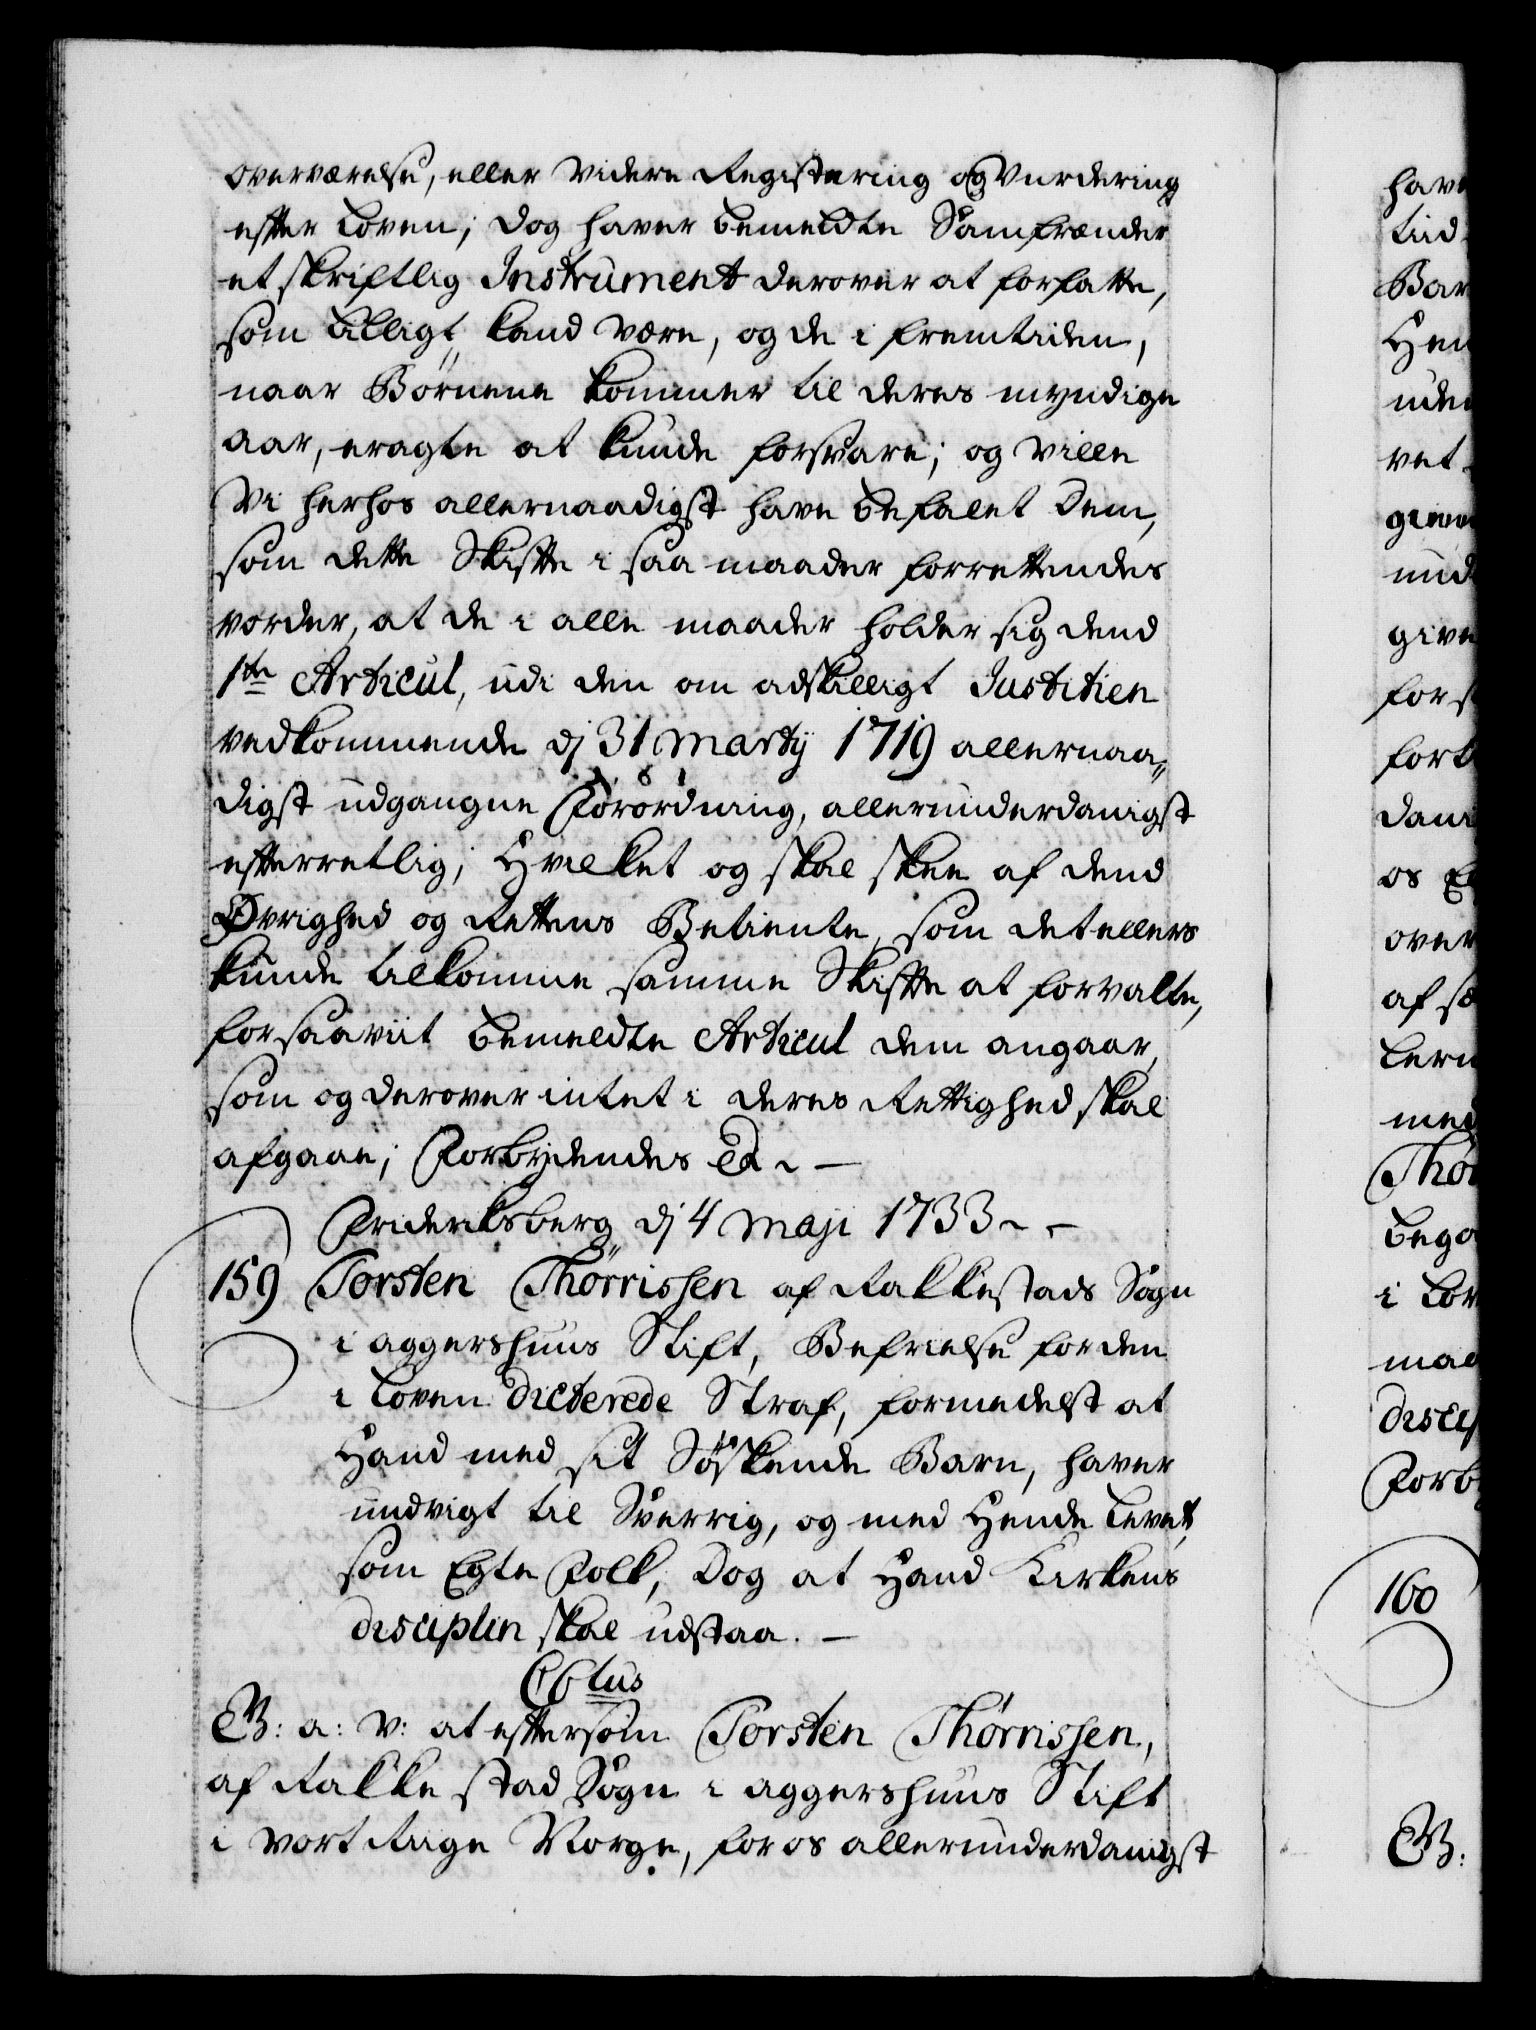 overværelse, eller videre Registering og Vurdering
efter Loven; dog haver bemeldte Samfrænder
et skriftlig Instrument derover at forfatte,
som billigt kand være, og de i fremtiden,
naar Børnene kommer til deres myndige
aar, eragte at kunde forsvare; og ville
Vi herhos allernaadigst have befalet dem,
som dette Skifte i saa maader forrettendes
vorder, at de i alle maader holder sig dend
1te Articul, udi den om adskilligt Justitien
vedkommende dj 31 Martij 1719 allernaa„
digst udgangne Forordning, allerunderdanigst
efterretlig; Hvilket og skal skee af dend
Øvrighed og Rettens Betiente, som det ellers
kunde tilkomme samme Skifte at forvalte,
forsaaviit bemeldte Articul dem angaar,
som og derover intet i deres Rettighed skal
afgaae; Forbydendes &c. —
Friderichsberg dj 4 Maji 1733 —
159 Torsten Thørrissen af Rakkestads Sogn
i aggershuus Stift, Befrielse for den
i Loven dicterede Straf, formedelst at
Hand med sit Sødskende Barn, haver
undvigt til Sverrig, og med Hende levet
som Egte Folk, dog at Hand Kirkens
disciplin skal udstaa. —
C6tus
G: a: V: at eftersom Torsten Thørrissen,
af Rakkestad Sogn i aggershuus Stift
i vort Rige Norge, for os allerunderdanigst
hav
tiid
Bar
Hen
uden
vet
give
und
give
fors
fork
dani
os
over
af
lern
med
Thør
bega
i Lov
maa
discip
Forb
160
G: